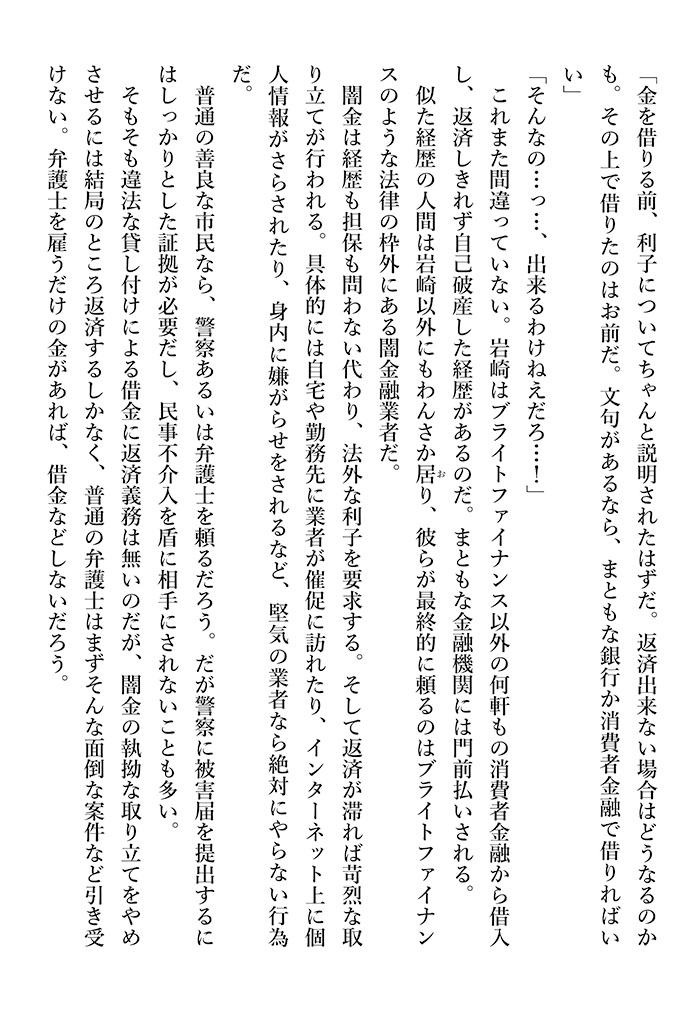 「金を借りる前、利子についてちゃんと説明されたはずだ。返済出来ない場合はどうなるのか
も。その上で借りたのはお前だ。文句があるなら、まともな銀行か消費者金融で借りればい
い」
「そんなの…っ…、出来るわけねえだろ…！」
　これまた間違っていない。岩崎はブライトファイナンス以外の何軒もの消費者金融から借入
し、返済しきれず自己破産した経歴があるのだ。まともな金融機関には門前払いされる。
　似た経歴の人間は岩崎以外にもわんさか居おり、彼らが最終的に頼るのはブライトファイナン
スのような法律の枠外にある闇金融業者だ。
　闇金は経歴も担保も問わない代わり、法外な利子を要求する。そして返済が滞れば苛烈な取
り立てが行われる。具体的には自宅や勤務先に業者が催促に訪れたり、インターネット上に個
人情報がさらされたり、身内に嫌がらせをされるなど、堅気の業者なら絶対にやらない行為
だ。
　普通の善良な市民なら、警察あるいは弁護士を頼るだろう。だが警察に被害届を提出するに
はしっかりとした証拠が必要だし、民事不介入を盾に相手にされないことも多い。
　そもそも違法な貸し付けによる借金に返済義務は無いのだが、闇金の執拗な取り立てをやめ
させるには結局のところ返済するしかなく、普通の弁護士はまずそんな面倒な案件など引き受
けない。弁護士を雇うだけの金があれば、借金などしないだろう。